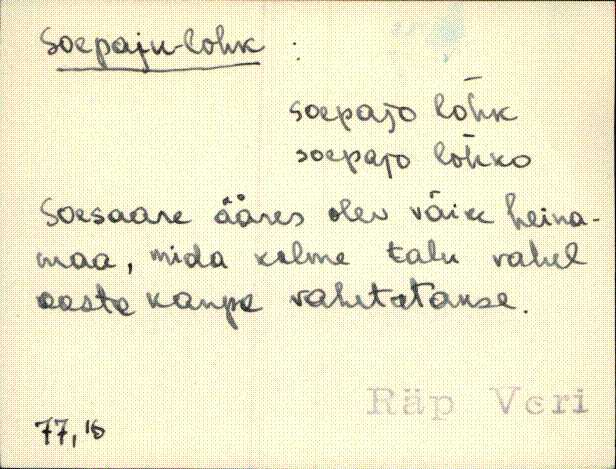 Soepaju-lohk :
soepajo lohk
soepajo lohko
Soesaare ääres olev väike heina-
maa, mida kolme talu vahel
aasta kaupa vahetatakse.
Räp Veri
77, 18